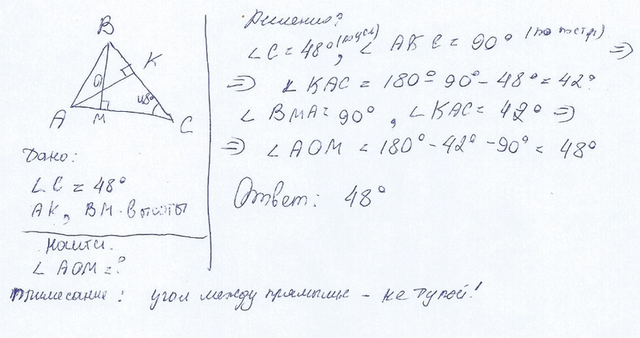 B
K
O
48°
A
M
C
Дано:
∠C = 48°
AK, BM - высоты
Найти.
∠ AOM = ?
Решение:
∠C = 48° (по усл), ∠ AKC = 90° (по постр) ⇒
⇒ ∠ KAC = 180° - 90° - 48° = 42°
∠ BMA = 90°, ∠ KAC = 42° ⇒
⇒ ∠ AOM = 180° - 42° - 90° = 48°
Ответ: 48°
Примечание: угол между прямыми - не тупой!